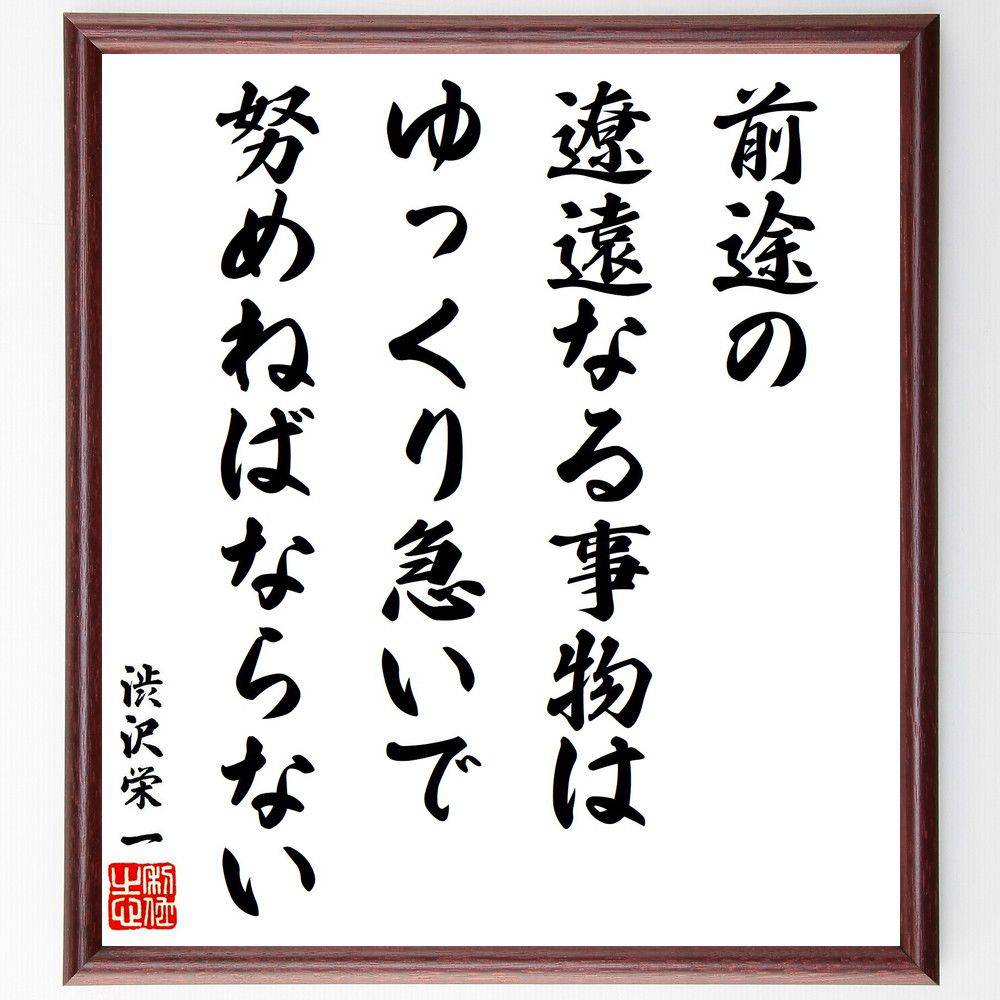 前途の
遼遠なる事物は
ゆっくり急いで
努めねばならない
渋沢栄一